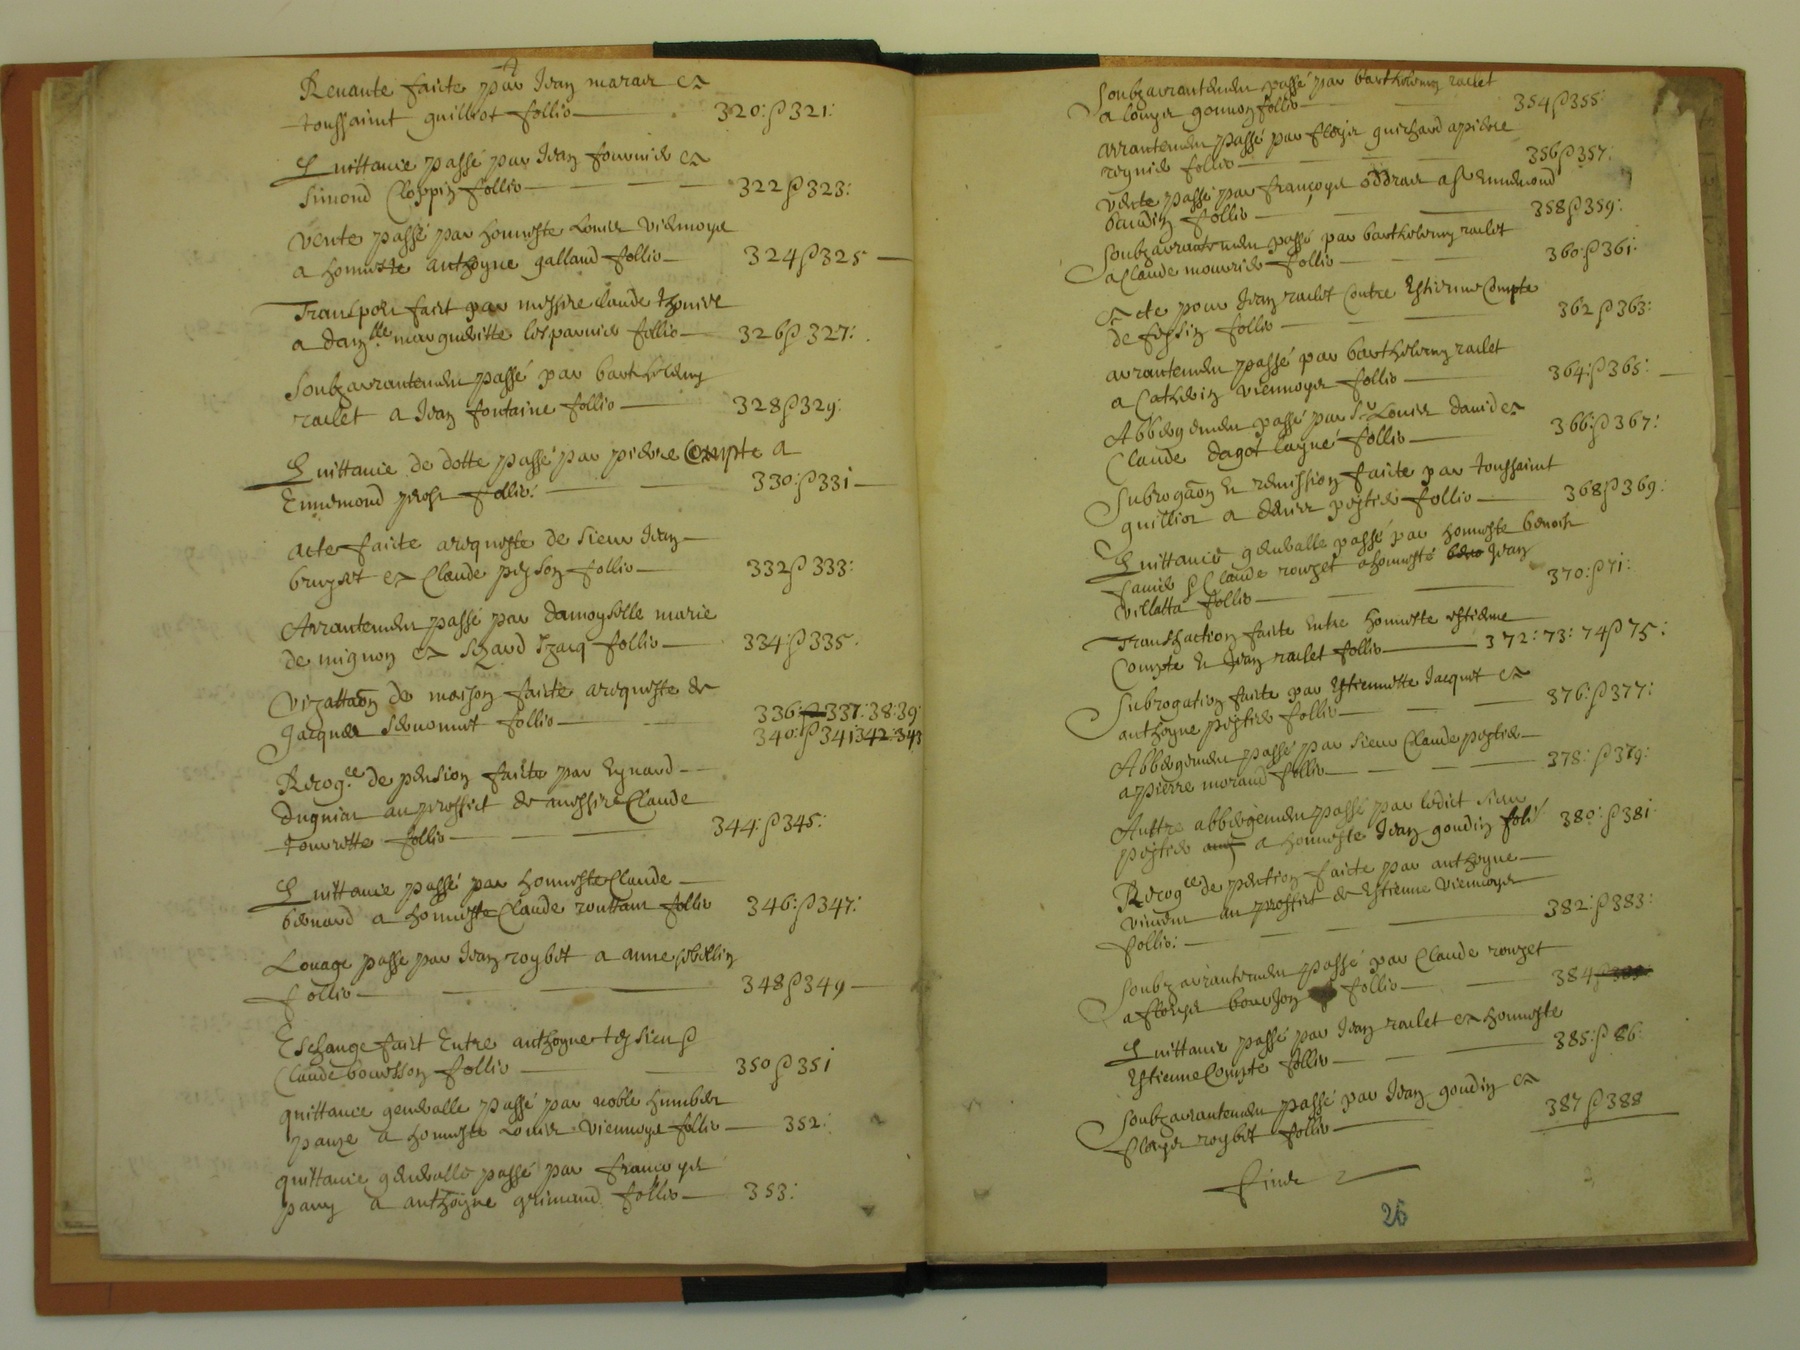 Revante faicte par Jean marar et
toussaint guilliot follio 320: & 321:
Quittance passé par Jean fournier et
Simond Cloppin follio 322 & 323:
Vente passé par honneste Louis viennoys
a honneste anthoyne galland follio 324 & 325
Transport faict par messire claude thonier
a dam^lle marguerite lesparnier follio 326 & 327:
Soubzarrantement passé par barthelemy
raclet a Jean fontaine follio 328 & 329:
Quittance de dotte passé par pierre Compte a
Ennemond follio: 330: & 331
acte faicte a requeste de sieur Jean
bruyset et Claude follio 332 & 333:
Arrantement passé par damoyselle marie
de mignon et follio 334: & 335:
Vizattaon de maison faicte a requeste de
Jacques follio 336: 337: 38: 39:
340: & 341 342: 343
Recog^ce de pension faicte par Eynard
au proffict de messire Claude
tourette follio 344: & 345:
Quittance passé par honneste Claude
bernard a honneste Claude follio 346: & 347:
Louage passe par Jean roybet a anne
follio 348 & 349
Eschange faict Entre anthoyne &
Claude follio 350 & 351
quittance generalle passé par noble humbert
a honneste Louis viennoys follio 352:
quittance generalle passé par francoys
pany a anthoyne grimaud follio 353:
Soubzarrantement passé par barthelemy raclet
a follio 354 & 355:
arrantement passé par guichard a pierre
reynier follio 356 & 357:
vente passé par françoys a s^r Ennemond
baudin follio 358 & 359:
Soubzarrantement passé par barthelemy raclet
a Claude mourier follio 360: & 361:
acte pour Jean raclet contre Estienne Compte
de fessin follio 362 & 363:
arrantement passé par barthelemy raclet
a Catherin viennoys follio 364: & 365:
Abbergement passé par s^r Louis david et
Claude dagot layné follio 366: & 367:
Subrogaon et remission faicte par toussaint
guilliot a follio 368 & 369:
Quittance generalle passé par honneste benoist
& Claude rouzet a honneste Jean
villatta follio 370: & 71:
Transaction faicte Entre honneste estienne
Compte et Jean raclet follio 372: 73: 74 & 75:
Subrogation faicte par Estiennette Jacquet et
anthoyne follio 376: & 377:
Abbergement passé par sieur Claude
a pierre morand follio 378: & 379:
Aultre abbergement passé par ledict sieur
a honneste Jean goudin foll 380: & 381
Recog^ce de pention faicte par anthoyne
vincent au proffict de Estienne viennoys
follio: 382: & 383:
Soubzarrantement passé par Claude rouzet
a bourjon follio 384
Quittance passé par Jean raclet et honneste
Estienne Compte follio 385: & 86:
Soubzarrantement passé par Jean goudin et
roybet follio 387 & 388
finis
26